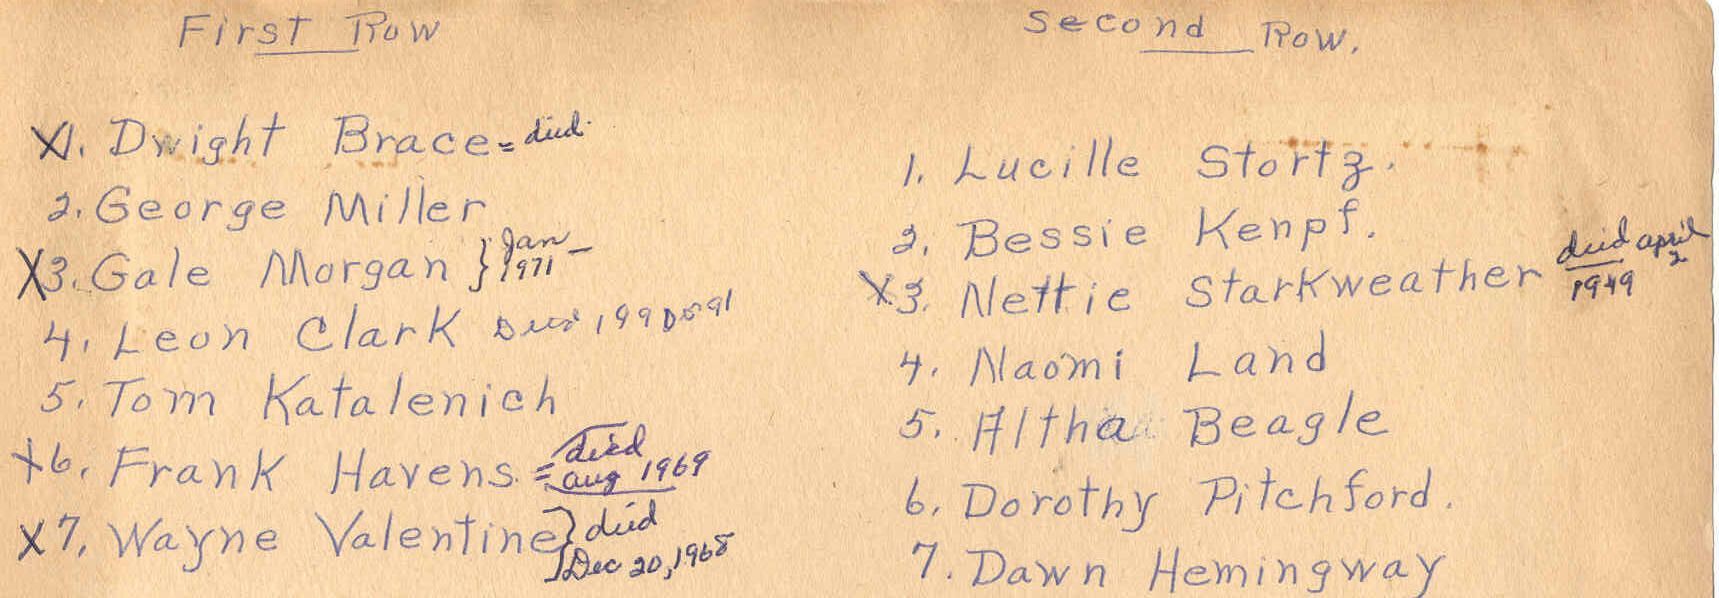 First Row
X1. Dwight Brace = died.
2. George Miller
X3. Gale Morgan } Jan – 1971
4. Leon Clark Died 1990 or 91
5. Tom Katalenich
X6. Frank Havens = died aug 1969
X7. Wayne Valentine } died Dec 20, 1968
Second Row.
1. Lucille Stortz.
2. Bessie Kenpf.
X3. Nettie Starkweather died april 2 1949
4. Naomi Land
5. Altha Beagle
6. Dorothy Pitchford.
7. Dawn Hemingway